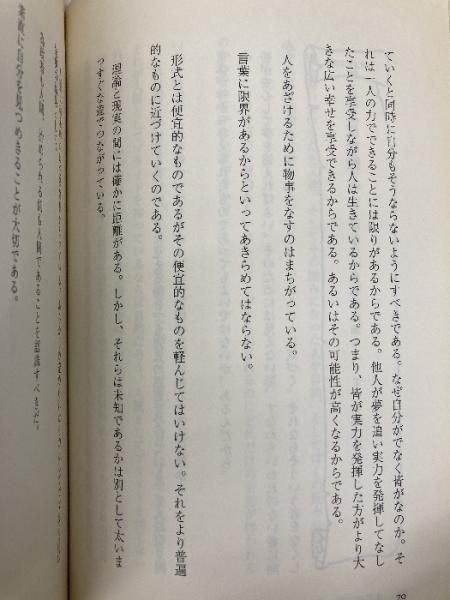 ていくと同時に自分もそうならないようにすべきである。なぜ自分がでなく皆がなのか。そ
れは一人の力でできることには限りがあるからである。他人が夢を追い実力を発揮してなし
たことを享受しながら人は生きているからである。つまり、皆が実力を発揮した方がより大
きな広い幸せを享受できるからである。あるいはその可能性が高くなるからである。
人をあざけるために物事をなすのはまちがっている。
言葉に限界があるからといってあきらめてはならない。
形式とは便宜的なものであるがその便宜的なものを軽んじてはいけない。それをより普遍
的なものに近づけていくのである。
理論と現実の間には確かに距離がある。しかし、それらは未知であるかは別として太いま
っすぐな道でつながっている。
人間であることを認識すべきだ。
素直に自分を見つめきることが大切である。